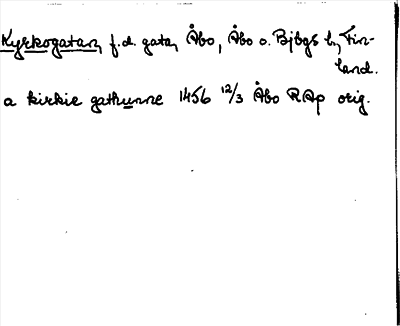 Kyrkogatan, f.d. gata, Åbo, Åbo o. Bjbgs l, Fin-
land.
a kirkie gathunne 1456 12/3 Åbo RAp orig.